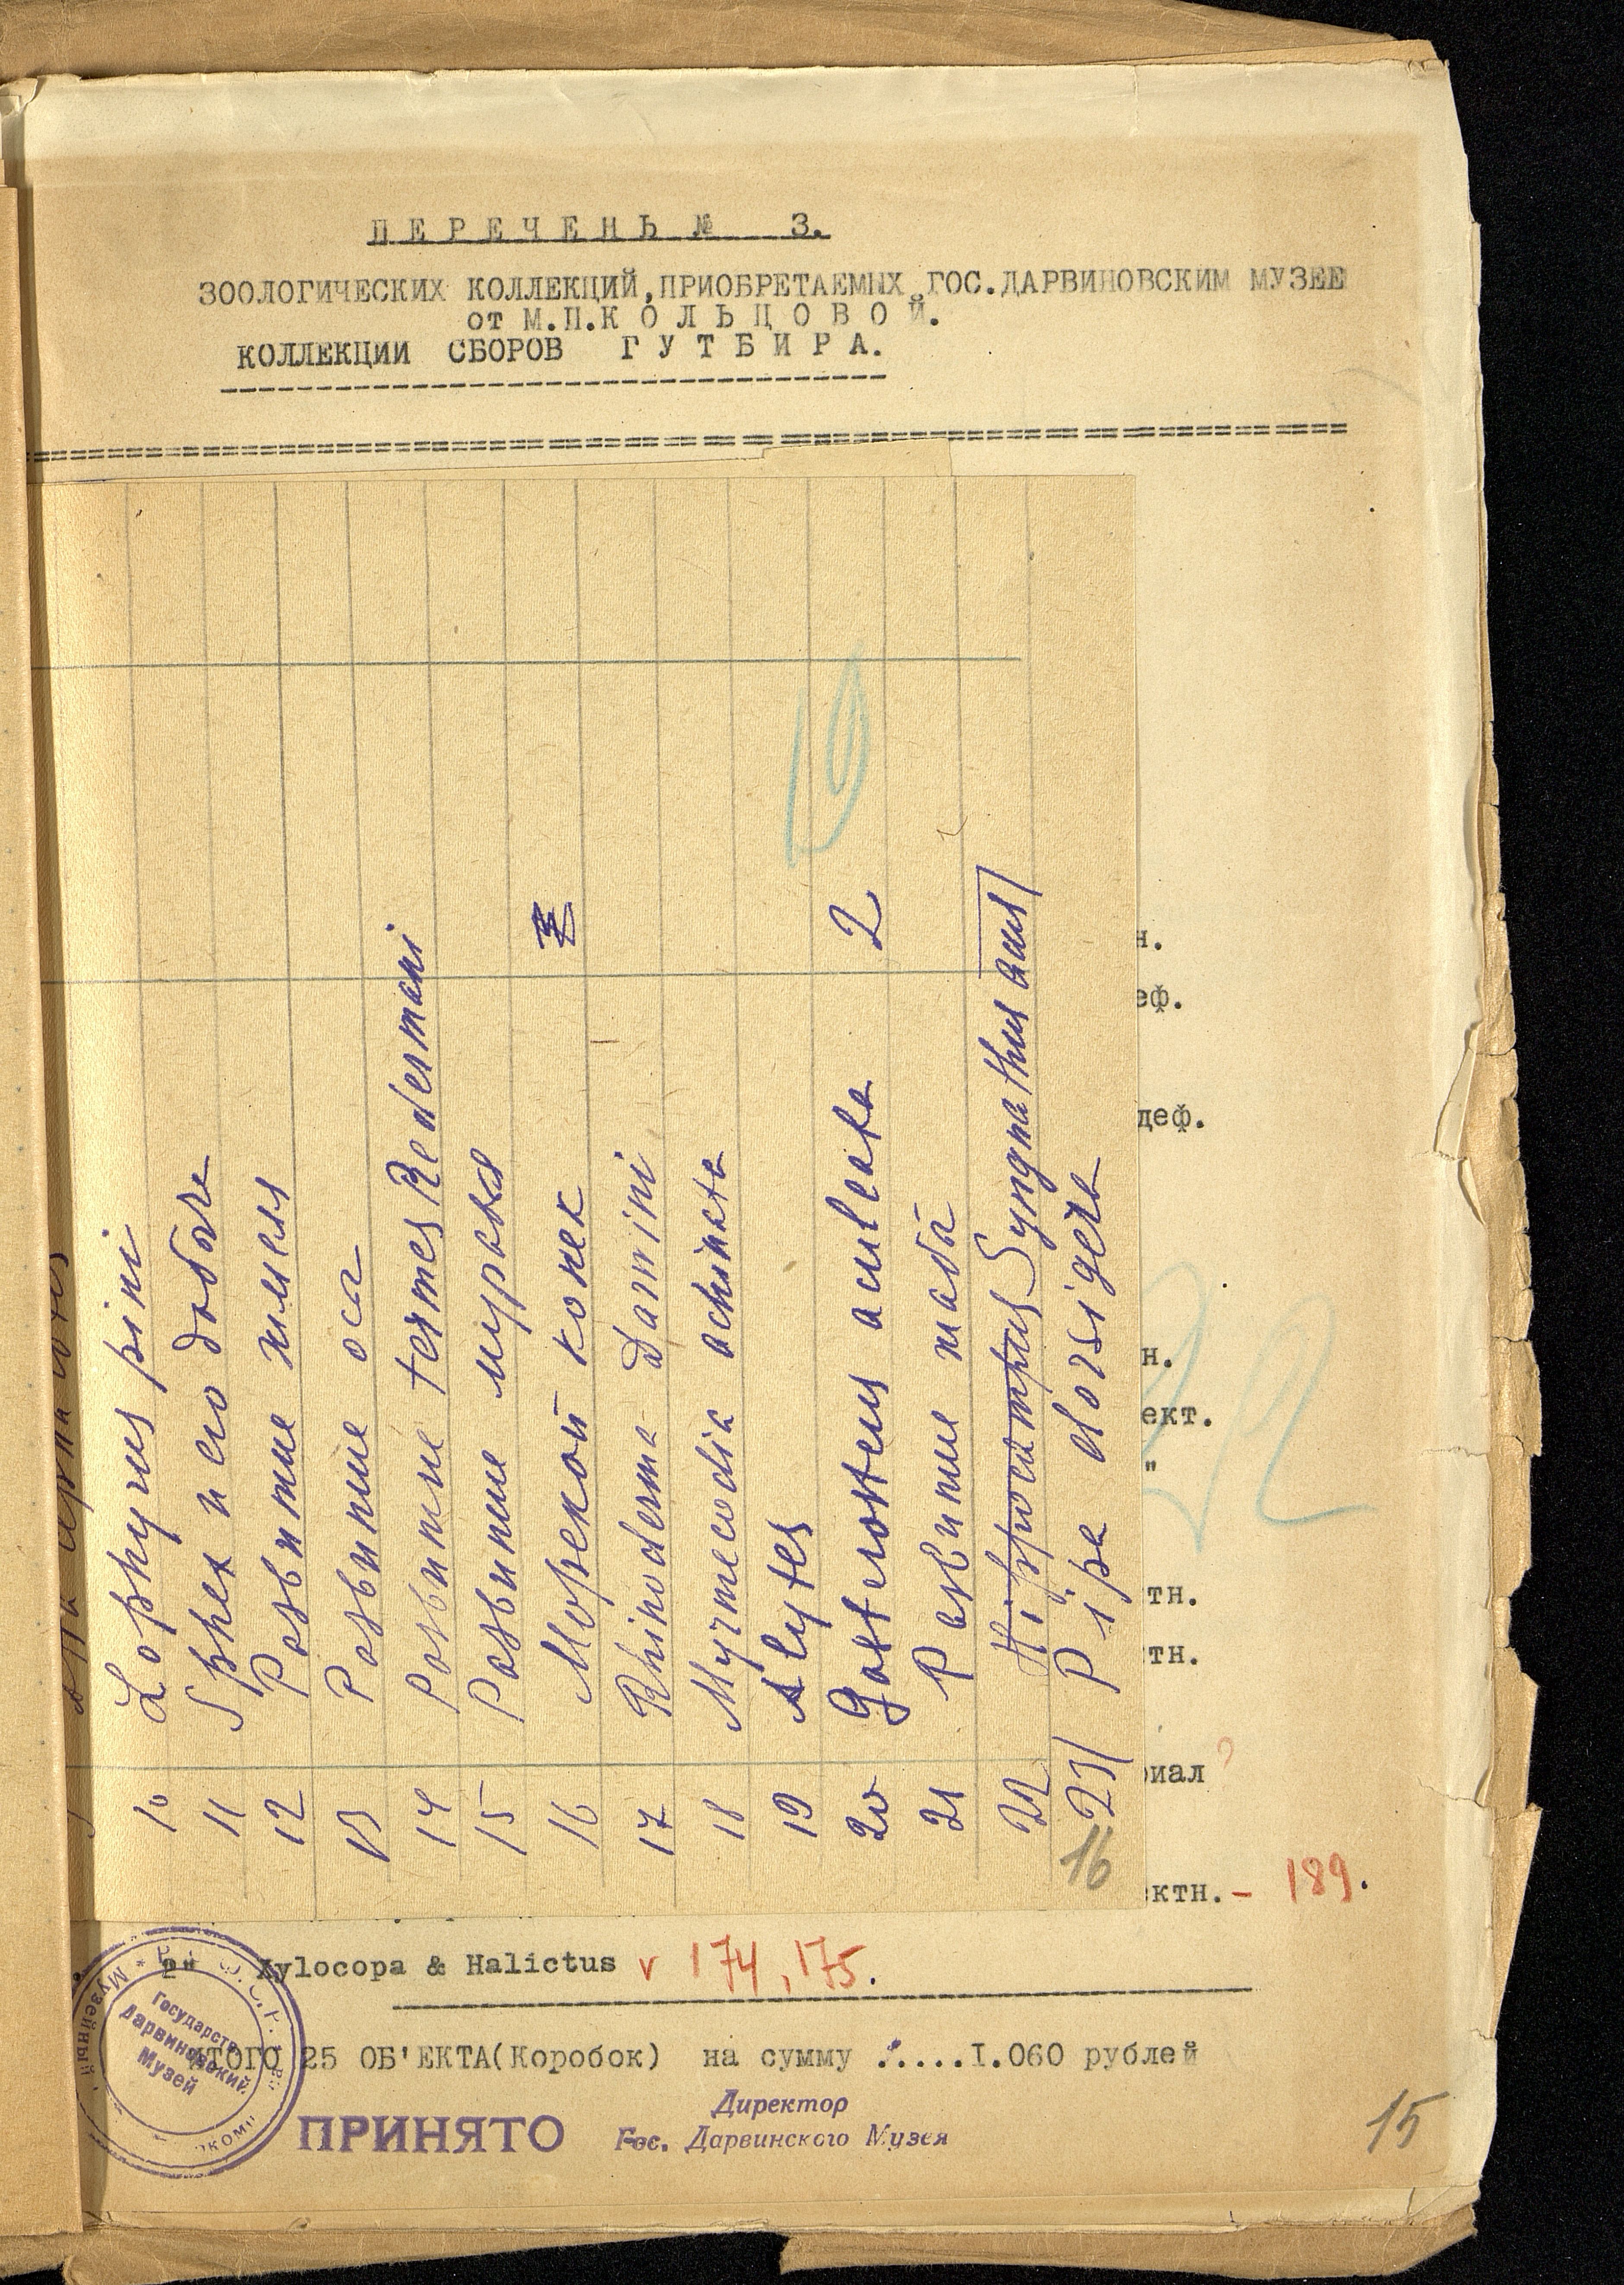 ПЕРЕЧЕНЬ № 3.
ЗООЛОГИЧЕСКИХ КОЛЛЕКЦИЙ,ПРИОБРЕТАЕМЫХ ГОС.ДАРВИНОВСКИМ МУЗЕЕ
от М.П.КОЛЬЦОВОЙ.
КОЛЛЕКЦИИ СБОРОВ ГУТБИРА.
10 Lophyrus pini
11 Sphex и его добыча
12 Развитие шмеля
13 Развитие оса
14 Развитие termes Redermani
15 Развитие муравья
16 Морской конек
17 Rhinoderma Darwini
18 Myrmecodia echinata
19 Alytes
20 Gasterosteus aculeata 2
21 Развитие жабы
22 Syngnathus acus
23 Pipa dorsigera
16
н.
еф.
деф.
н.
ект.
"
тн.
тн.
иал ?
ектн. - 189.
Xylocopa & Halictus v 174, 175.
ИТОГО 25 ОБ'ЕКТА(Коробок) на сумму .....1.060 рублей
Государств.
Дарвиновский
Музей
Музейный
ПРИНЯТО
Директор
Гос. Дарвинского Музея
15